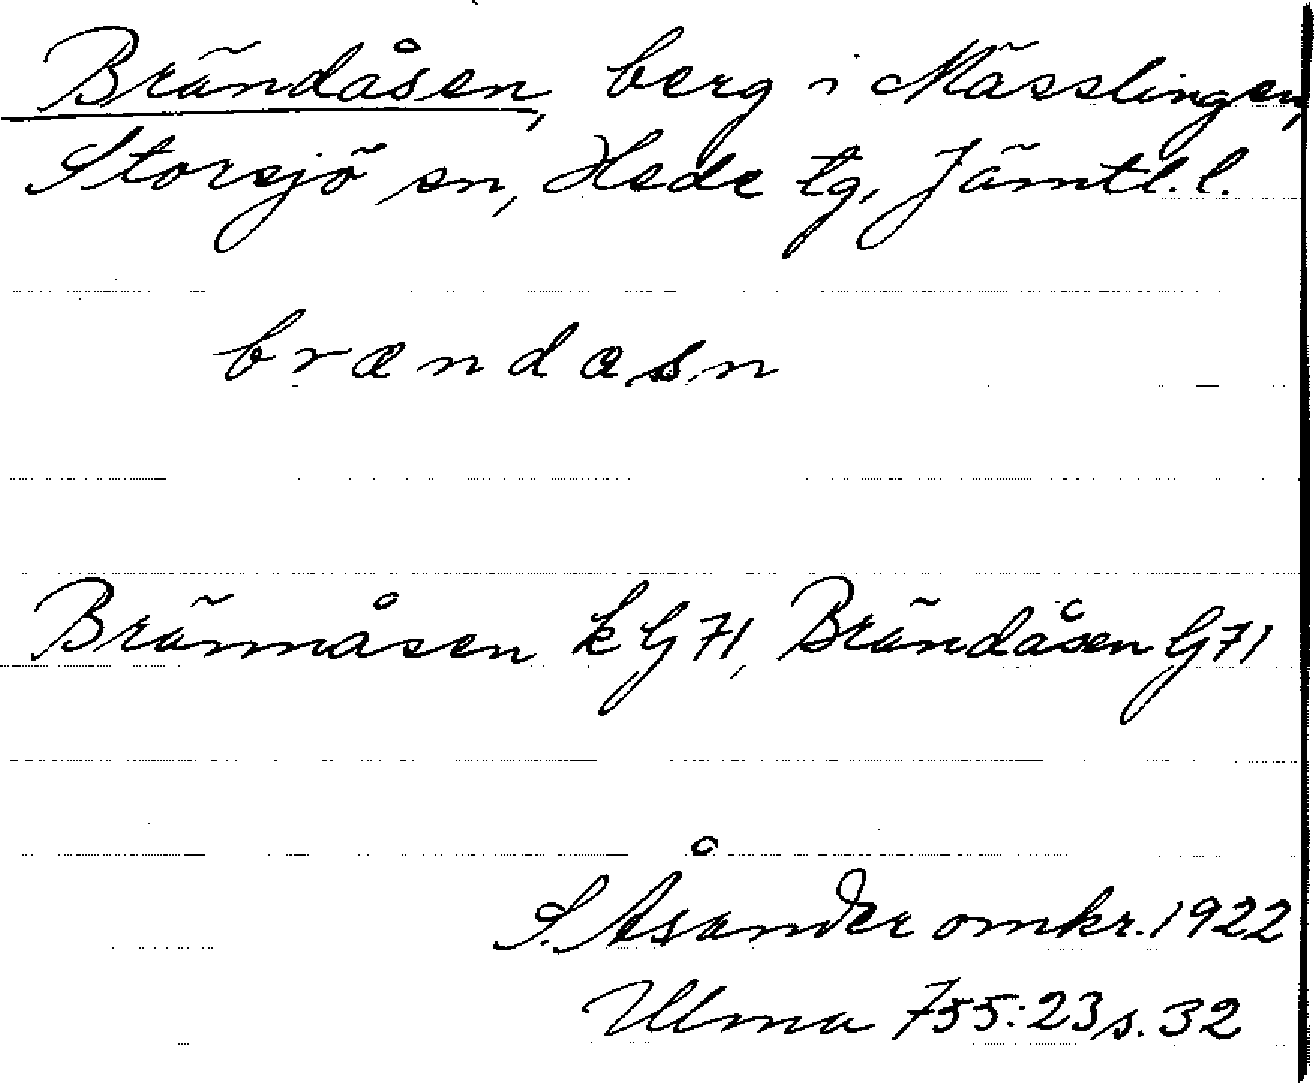 Brändåsen, berg i Mässlingen,
Storsjö sn, Hede tg, Jämtl. l.
brændasn
Brännåsen k G 71, Brändåsen G 71
S. Åsander omkr. 1922
Ulma 755:23 s. 32